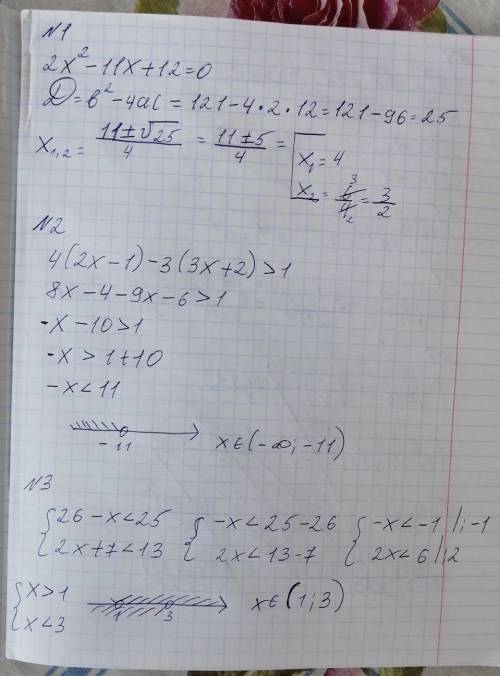 №1
2x² - 11x + 12 = 0
D = b² - 4ac = 121 - 4 * 2 * 12 = 121 - 96 = 25
x₁,₂ = (11 ± √25)/4 = (11 ± 5)/4 = [ x₁ = 4
x₂ = 6/4 = 3/2
№2
4(2x - 1) - 3(3x + 2) > 1
8x - 4 - 9x - 6 > 1
-x - 10 > 1
-x > 1 + 10
-x < 11
-11 x ∈ (-∞; -11)
№3
{ 26 - x < 25 { -x < 25 - 26 { -x < -1 |: -1
2x + 7 < 13 2x < 13 - 7 2x < 6 |: 2
{ x > 1
x < 3 1 3 x ∈ (1; 3)